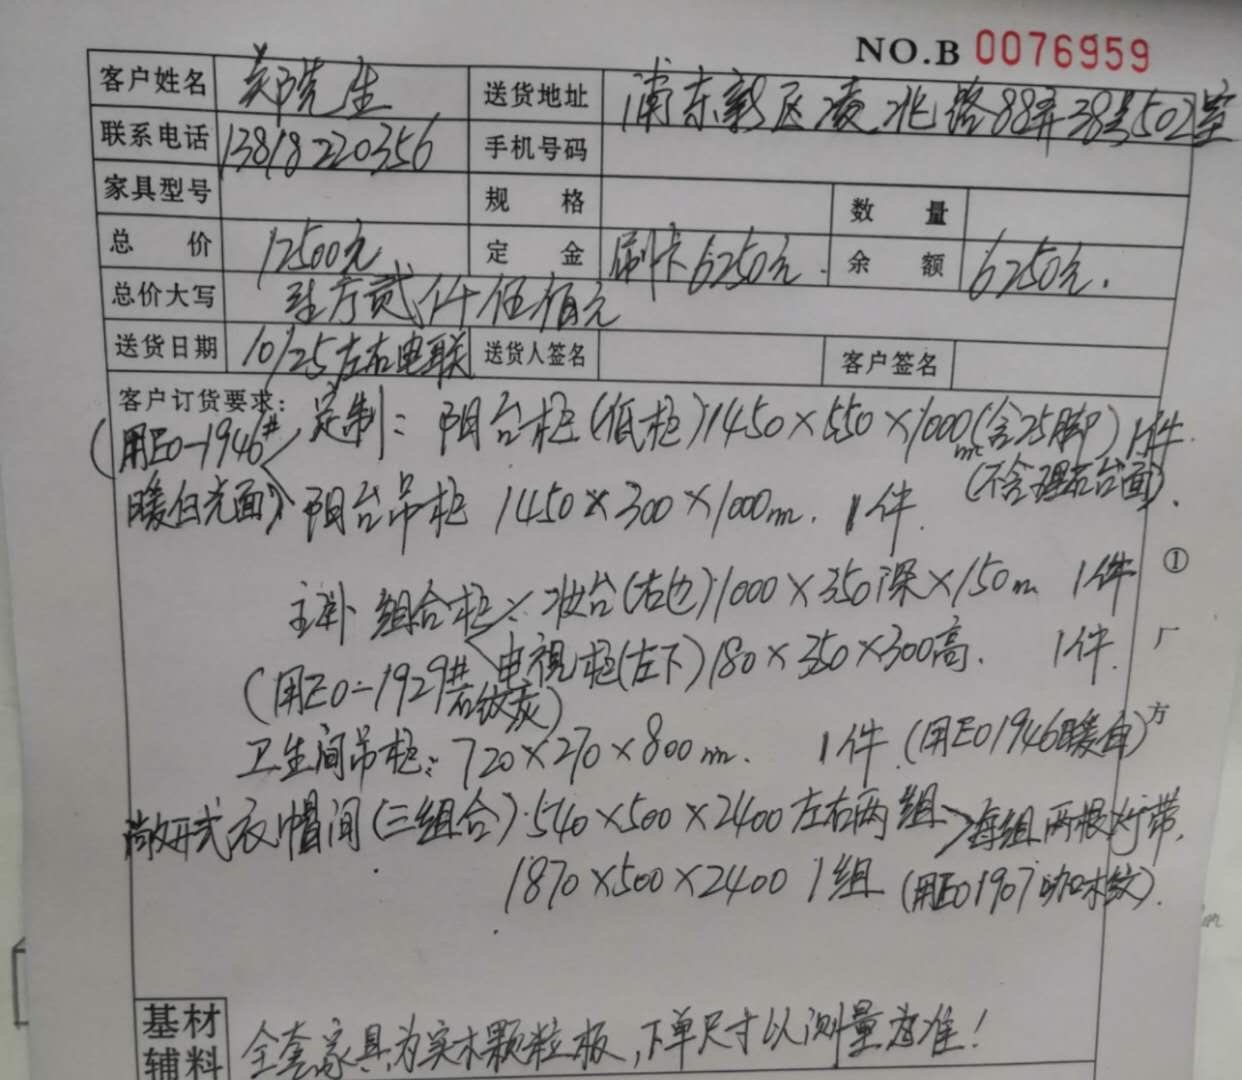 NO.B 0076959
客户姓名 关晓生 送货地址 浦东新区凌兆路88弄38号502室
联系电话 13818220356 手机号码
家具型号 规格 数量
总价 12500元 定金 刷卡6250元. 余额 6250元.
总价大写 壹万贰仟伍佰元
送货日期 10/25左右电联 送货人签名 客户签名
客户订货要求: 定制: 阳台柜(低柜)1450×550×1000m(含25脚) 1件.
(用E0-1946# 暖白光面) (不含理石台面).
阳台吊柜 1450×300×1000m. 1件.
主卧 组合柜: 妆台(右边)1000×350深×150m 1件 ①
电视柜(左下)180×350×300高. 1件. 厂
(用E0-1929#石纹灰)
卫生间吊柜: 720×270×800m. 1件.(用E01946暖白) 方
敞开式衣帽间(三组合)·540×500×2400左右两组>每组两根灯带.
1870×500×2400 1组 (用E01907咖木纹).
基材辅料 全套家具为实木颗粒板,下单尺寸以测量为准!